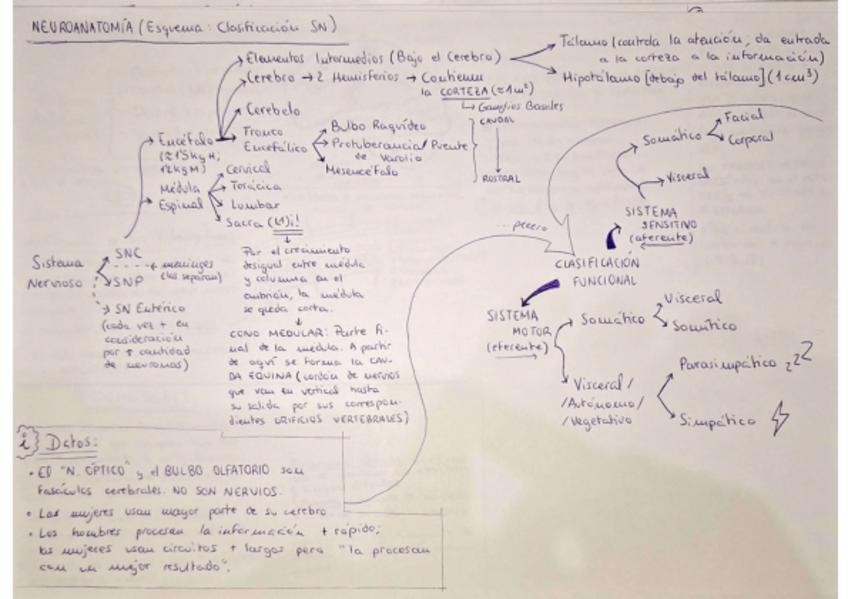 NEUROANATOMÍA (Esquema: Clasificación SN)
Elementos Intermedios (Bajo el Cerebro)
Tálamo (controla la atención; da entrada
a la corteza a la información)
Hipotálamo [debajo del tálamo] (1cm³)
Cerebro → 2 Hemisferios → Contienen
la CORTEZA (≈1m²)
Ganglios Basales
Cerebelo
Tronco
Encefálico
Bulbo Raquídeo
Protuberancia/Puente
de Varolio
Mesencéfalo
CAUDAL
ROSTRAL
Encéfalo
(≈1'5kg H;
1'2kg M)
Médula
Espinal
Cervical
Torácica
Lumbar
Sacra (L1)¡!
Por el crecimiento
desigual entre médula
y columna en el
embrión, la médula
se queda corta.
CONO MEDULAR: Parte fi-
nal de la médula. A partir
de aquí se forma la CAU-
DA EQUINA (cordón de nervios
que van en vertical hasta
su salida por sus correspon-
dientes ORIFICIOS VERTEBRALES)
Sistema
Nervioso
SNC
meninges
(las separan)
SNP
SN Entérico
(cada vez + en
consideración
por ↑ cantidad
de neuronas)
...peeero
CLASIFICACIÓN
FUNCIONAL
SISTEMA
SENSITIVO
(aferente)
Somático
Facial
Corporal
Visceral
SISTEMA
MOTOR
(eferente)
Somático
Visceral
Somítico
Visceral/
/Autónomo/
/Vegetativo
Parasimpático zzZ
Simpático
i Datos:
• El "N. ÓPTICO" y el BULBO OLFATORIO son
fascículos cerebrales. NO SON NERVIOS.
• Las mujeres usan mayor parte de su cerebro
• Los hombres procesan la información + rápido;
las mujeres usan circuitos + largos pero "la procesan
con un mejor resultado".